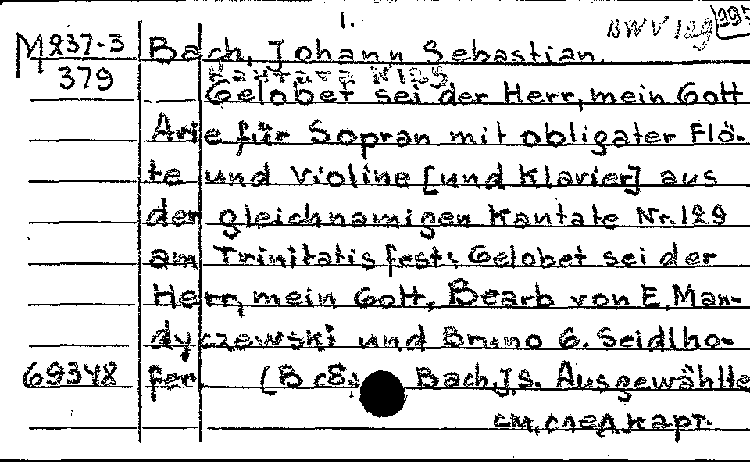 1.
BWV 129
M 237-3
379
Bach, Johann Sebastian.
Gelobet sei der Herr, mein Gott
Arie für Sopran mit obligater Flö-
te und Violine [und Klavier] aus
der gleichnamigen Kantate Nr. 129
am Trinitatisfest: Gelobet sei der
Herr, mein Gott. Bearb von E. Man-
dyczewski und Bruno G. Seidlho-
fer. Bach, J.S. Ausgewählte
69348
см. след. карт.